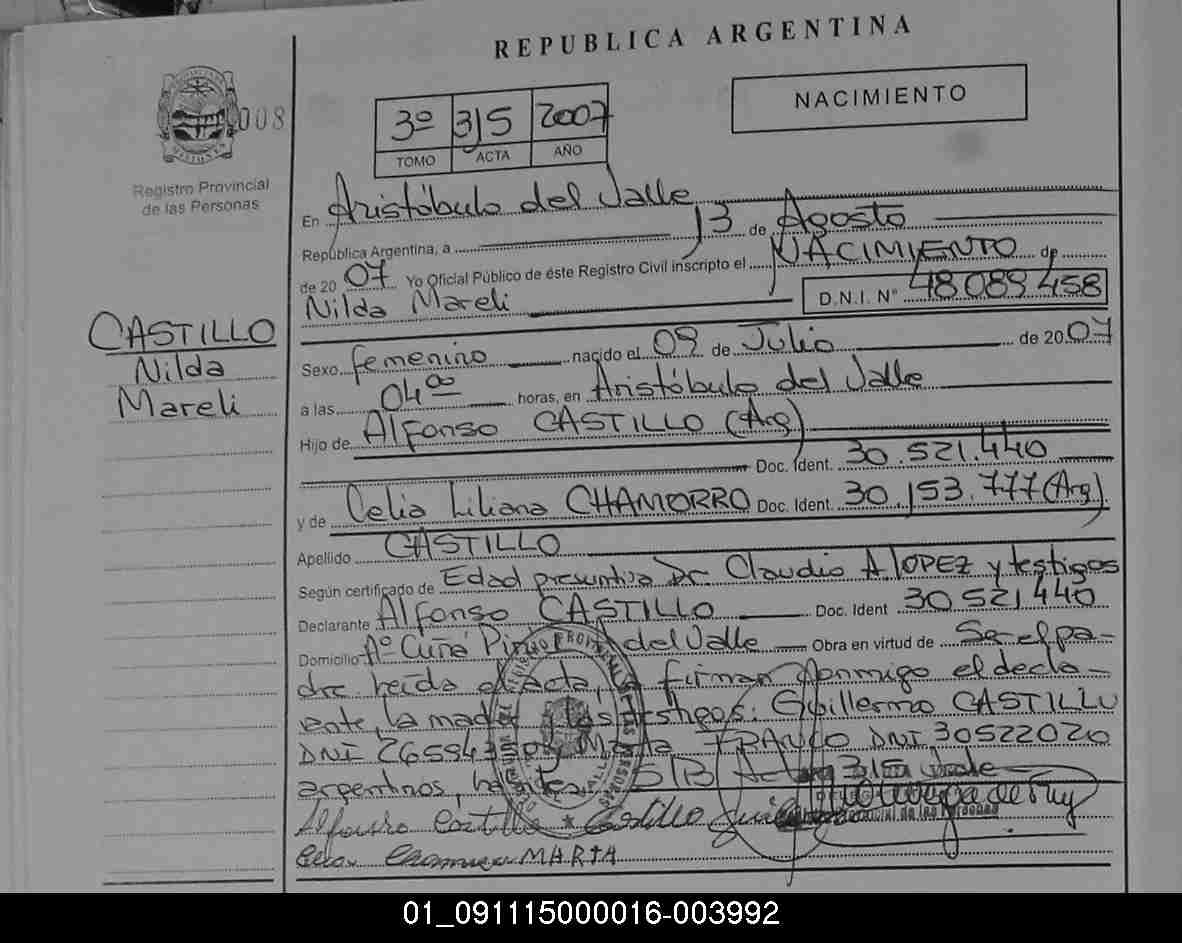 REPUBLICA ARGENTINA
008
3º 315 2007
TOMO ACTA AÑO
NACIMIENTO
Registro Provincial
de las Personas
En Aristóbulo del Valle
República Argentina, a 13 de Agosto
de 2007 Yo Oficial Público de éste Registro Civil inscripto el NACIMIENTO de
Nilda Mareli D.N.I. Nº 48089458
CASTILLO
Nilda
Mareli
Sexo femenino nacido el 09 de Julio de 2007
a las 04ºº horas, en Aristóbulo del Valle
Hijo de Alfonso CASTILLO (Arg)
Doc. Ident. 30.521.440
y de Celia Liliana CHAMORRO Doc. Ident. 30.153.777 (Arg)
Apellido CASTILLO
Según certificado de Edad presuntiva Dr. Claudio A LOPEZ y testigos
Declarante Alfonso CASTILLO Doc. Ident 30521440
Domicilio Aº Cuña Pirú del Valle Obra en virtud de Ser el pa-
dre leída el acta, firman conmigo el decla-
rante, la madre y los testigos: Guillermo CASTILLO
DNI María FRANCO DNI 30522020
argentinos, S/B Acta 315 vale
Alfonso Castillo Castillo
Celia Chamorro MARTA
01_091115000016-003992